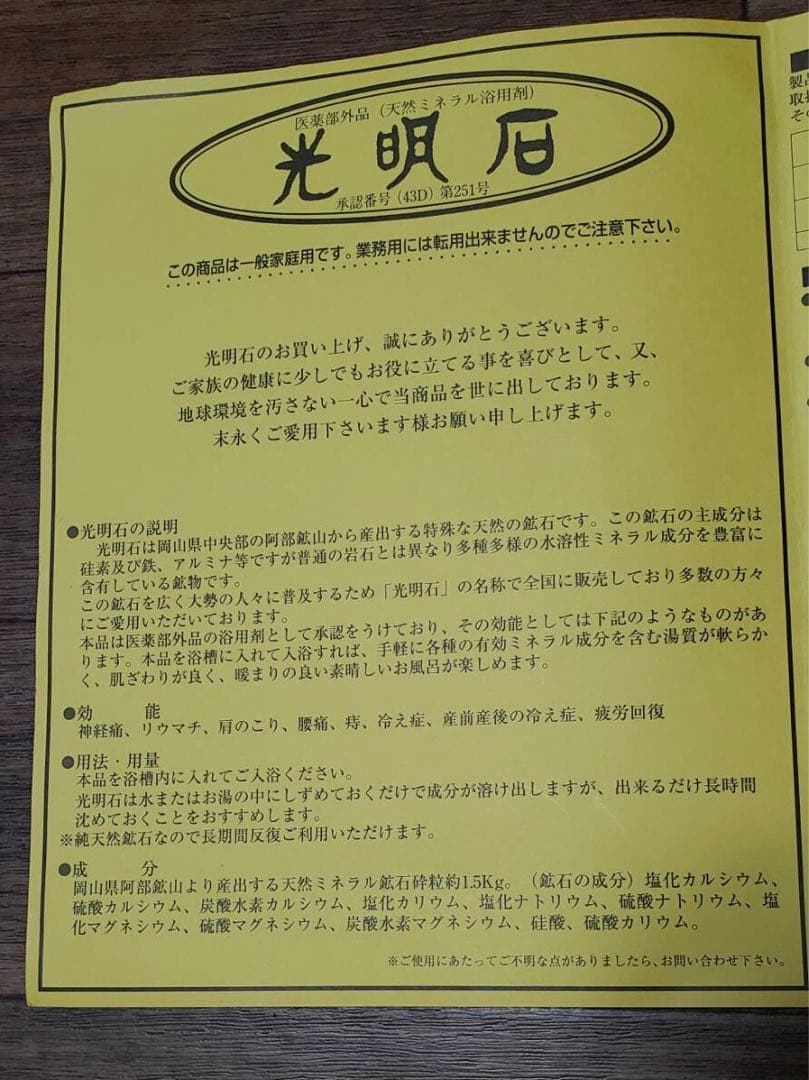 医薬部外品（天然ミネラル浴用剤）
光明石
承認番号（43D）第251号
この商品は一般家庭用です。業務用には転用出来ませんのでご注意下さい。
光明石のお買い上げ、誠にありがとうございます。
ご家族の健康に少しでもお役に立てる事を喜びとして、又、
地球環境を汚さない一心で当商品を世に出しております。
末永くご愛用下さいます様お願い申し上げます。
●光明石の説明
光明石は岡山県中央部の阿部鉱山から産出する特殊な天然の鉱石です。この鉱石の主成分は
硅素及び鉄、アルミナ等ですが普通の岩石とは異なり多種多様の水溶性ミネラル成分を豊富に
含有している鉱物です。
この鉱石を広く大勢の人々に普及するため「光明石」の名称で全国に販売しており多数の方々
にご愛用いただいております。
本品は医薬部外品の浴用剤として承認をうけており、その効能としては下記のようなものがあ
ります。本品を浴槽に入れて入浴すれば、手軽に各種の有効ミネラル成分を含む湯質が軟らか
く、肌ざわりが良く、暖まりの良い素晴しいお風呂が楽しめます。
●効　　能
神経痛、リウマチ、肩のこり、腰痛、痔、冷え症、産前産後の冷え症、疲労回復
●用法・用量
本品を浴槽内に入れてご入浴ください。
光明石は水またはお湯の中にしずめておくだけで成分が溶け出しますが、出来るだけ長時間
沈めておくことをおすすめします。
※純天然鉱石なので長期間反復ご利用いただけます。
●成　　分
岡山県阿部鉱山より産出する天然ミネラル鉱石砕粒約1.5Kg。（鉱石の成分）塩化カルシウム、
硫酸カルシウム、炭酸水素カルシウム、塩化カリウム、塩化ナトリウム、硫酸ナトリウム、塩
化マグネシウム、硫酸マグネシウム、炭酸水素マグネシウム、硅酸、硫酸カリウム。
※ご使用にあたってご不明な点がありましたら、お問い合わせ下さい。
製品
取扱
その